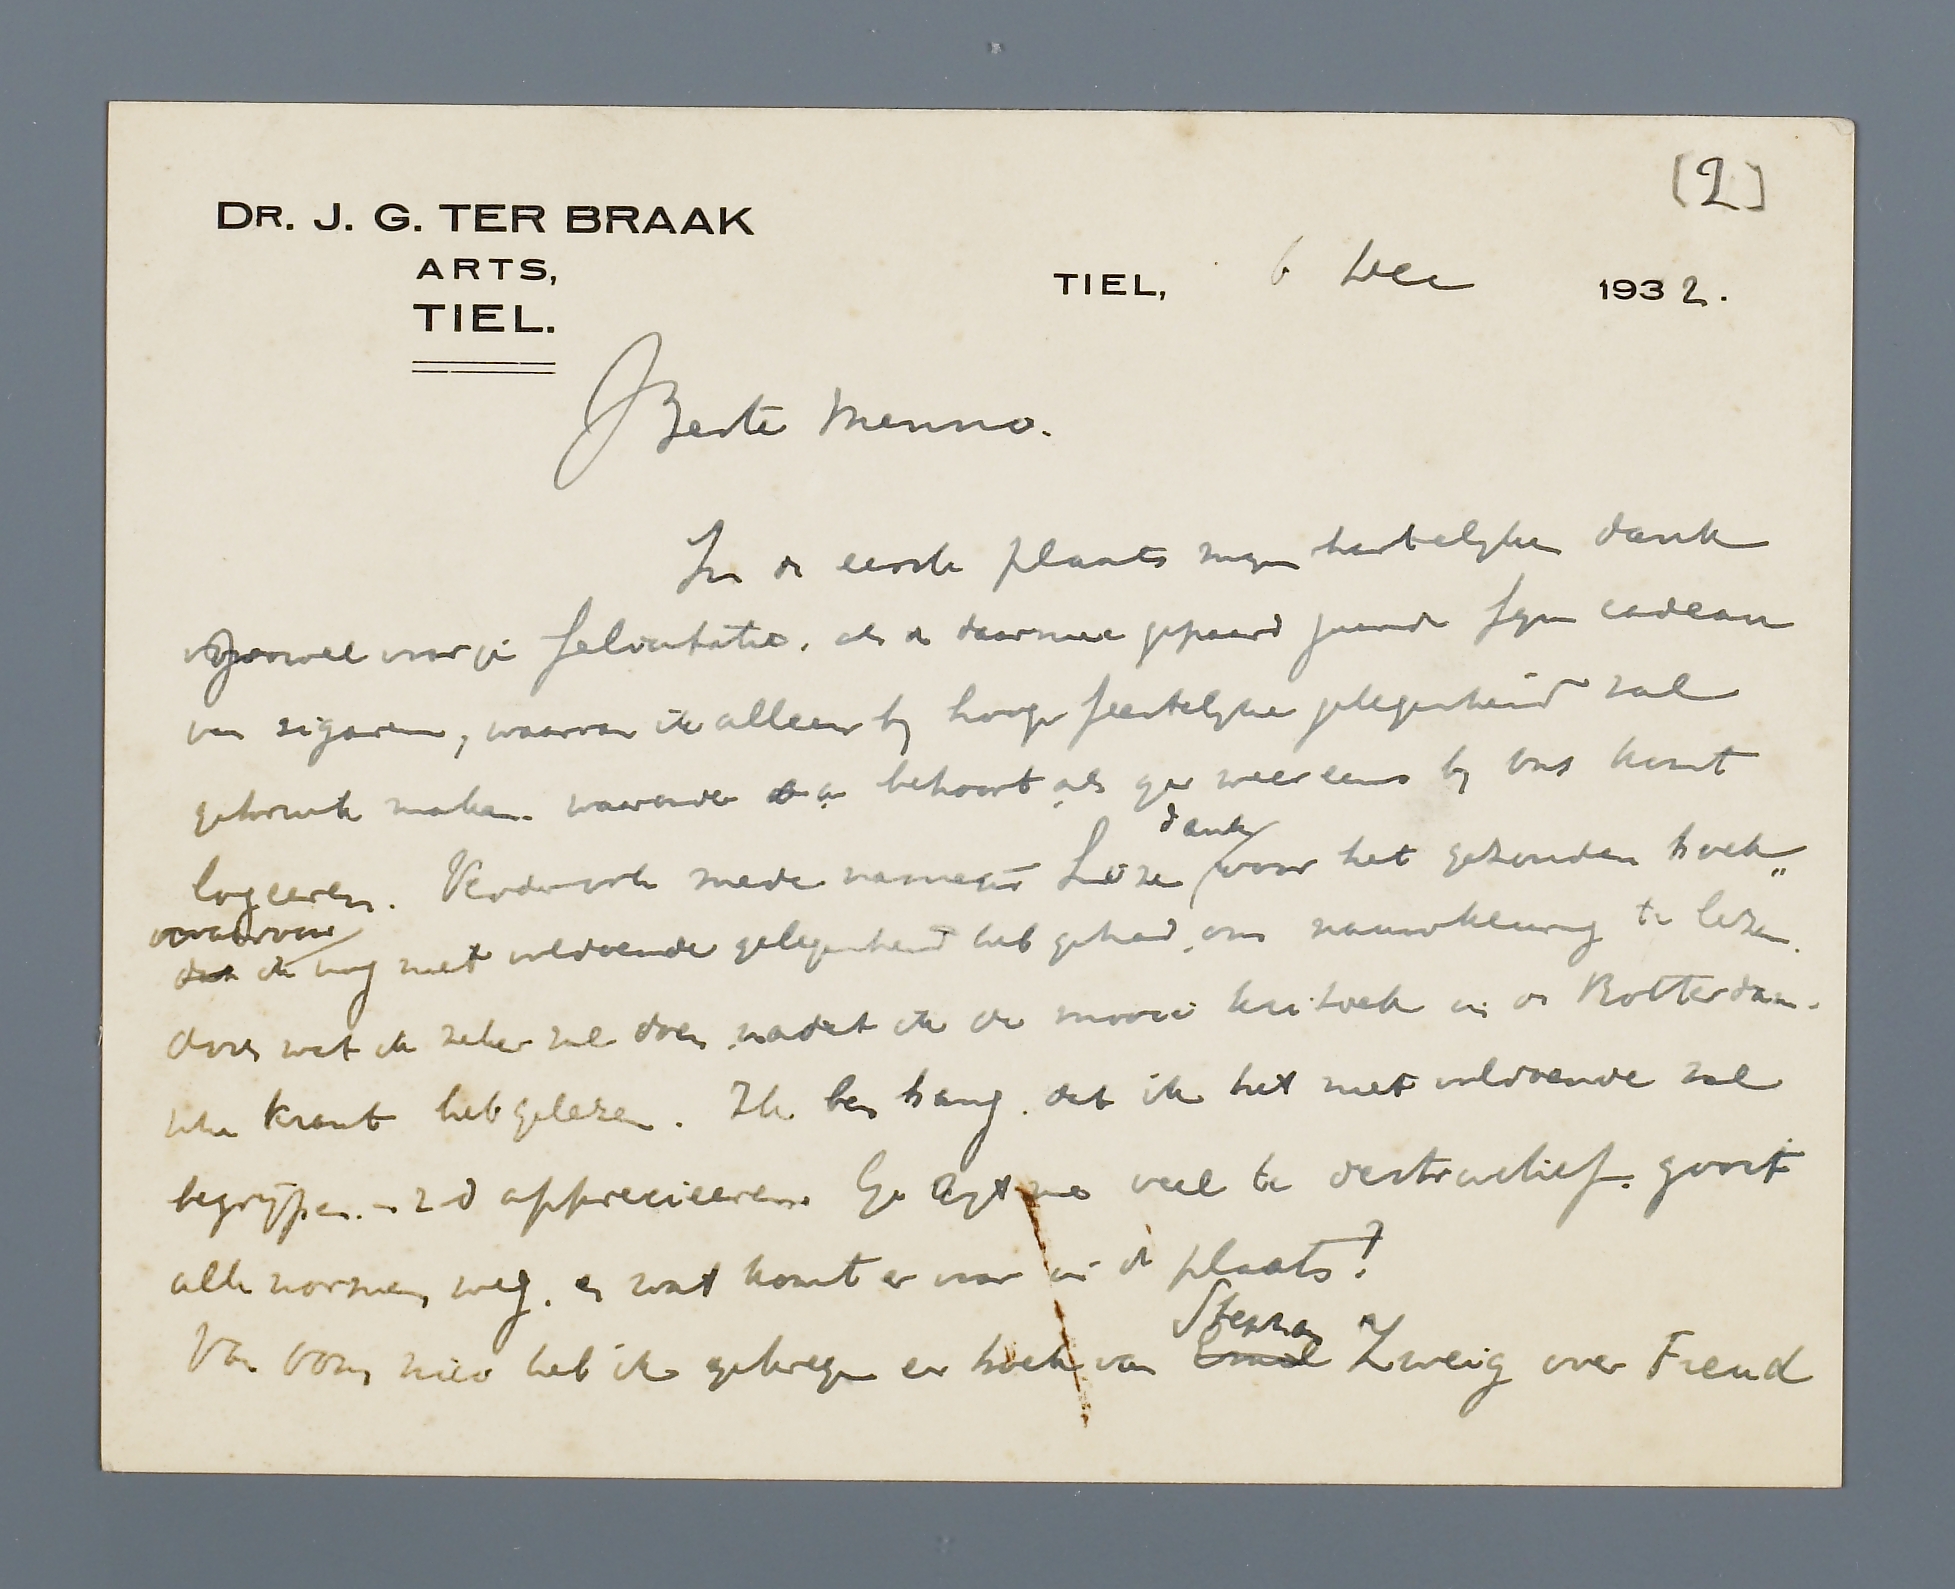 [2]
DR. J. G. TER BRAAK
ARTS,
TIEL.
TIEL, 6 Dec 1932.
Beste Menno.
In de eerste plaats mijn hartelijken dank
zoowel voor je felicitatie, als de daarmee gepaard gaande fijn cadeau
van sigaren, waarvan ik alleen bij hooge feestelijke gelegenheid zal
gebruik maken waaronder o.a. behoort als ge weer eens bij ons komt
logeeren. Verder ook mede namens dank voor het gezonden boek
waarvan
ik nog niet voldoende gelegenheid heb gehad, om nauwkeurig te lezen
door wat ik zeker zal doen nadat ik de mooie kritiek in de Rotterdam-
sche krant heb gelezen. Ik ben bang dat ik het niet voldoende zal
begrijpen appreciëeren. Ge lijkt me veel te destructief, gooit
alle normen weg, en wat komt er voor in de plaats?
Stephan
Van oom heb ik gekregen een boek van Zweig over Freud